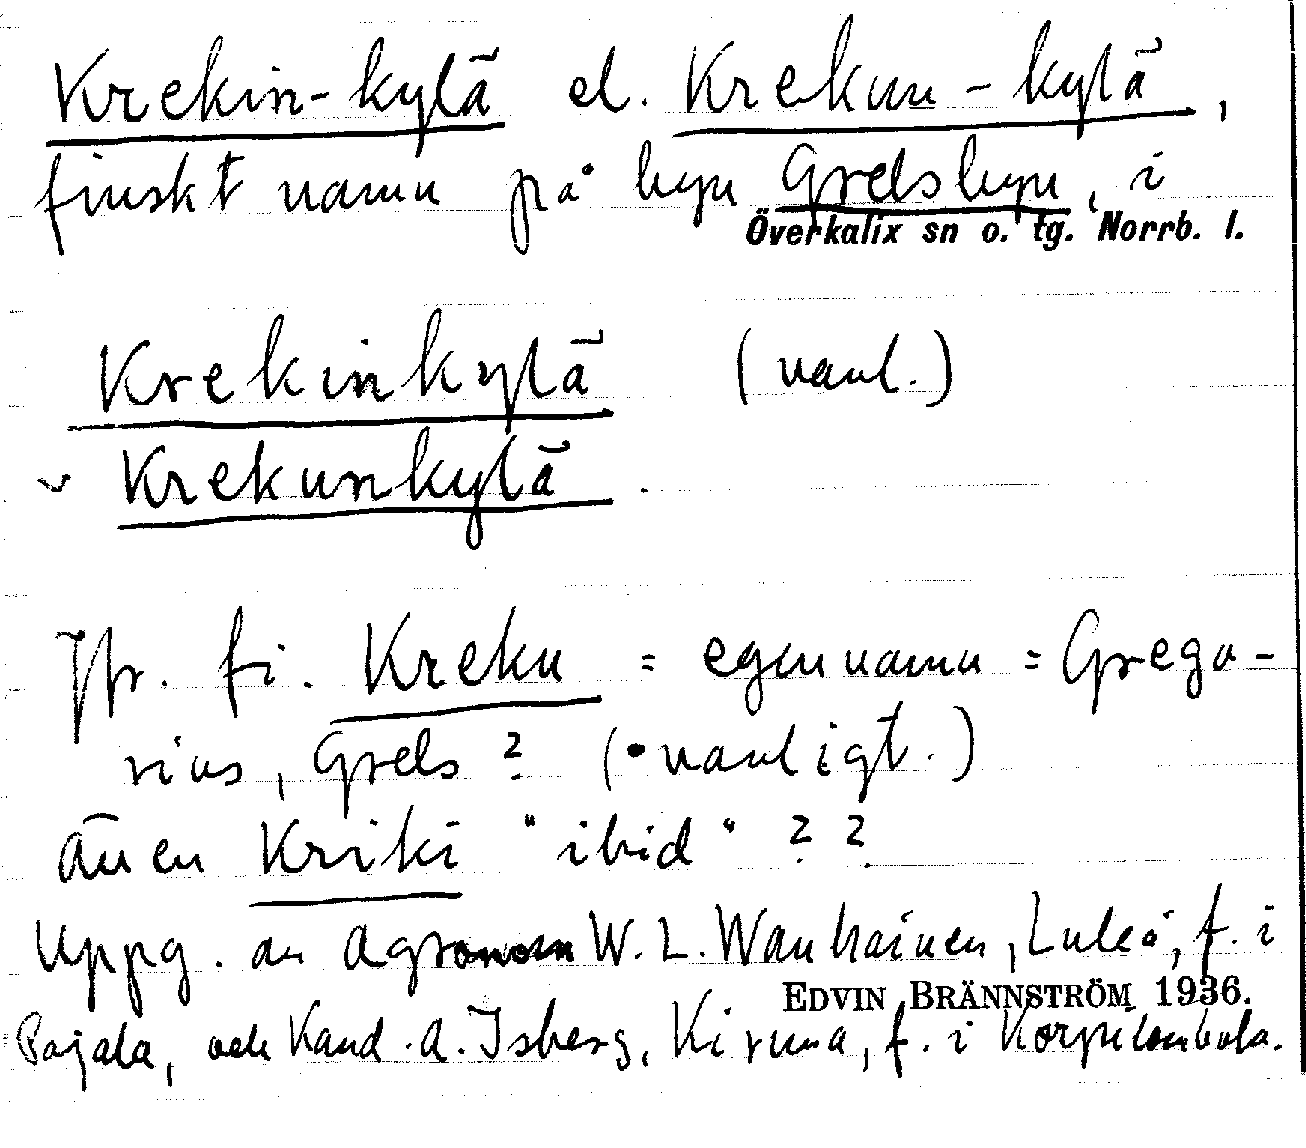 Krekin-kylä el. Krekun-kylä,
finskt namn på byn Grelsbyn, i
Överkalix sn o. tg. Norrb. l.
Krekinkylä (vanl.)
Krekunkylä.
Jfr. fi. Kreku = egennamn = Grego-
rius, Grels? (vanligt.)
även Kriki "ibid" ??
Uppg. av Agronom W. L. Wanhainen, Luleå, f. i
EDVIN BRÄNNSTRÖM 1936.
Pajala, och Kand. A. Isberg, Kiruna, f. i Korpilombolo.